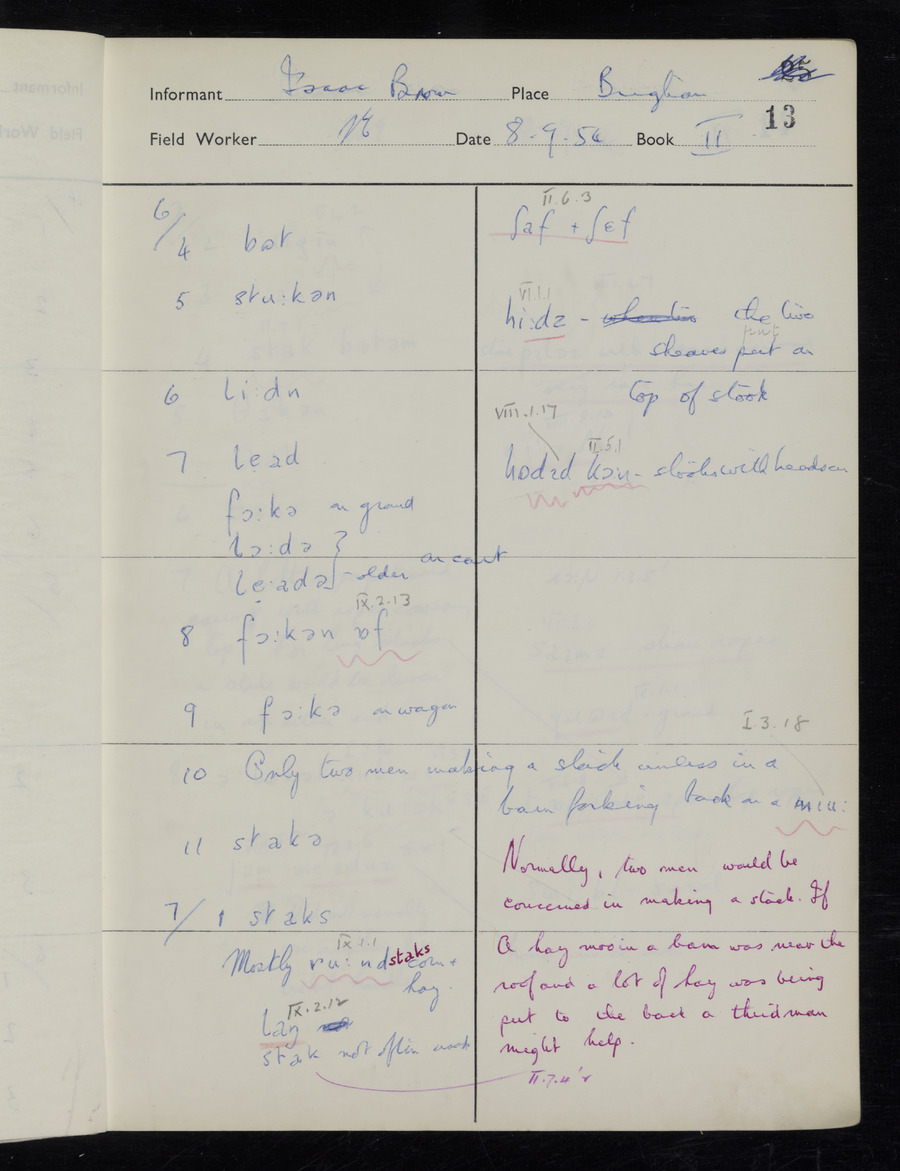 Informant Isaac Brown Place Brigham
13
Field Worker Date 8.9.54 Book II
6/4 bət
5 stu:kən
6 li:dn
7 lẹad
fɔ:kə on ground
lɔ:də }
lẹ·adə } - older on cart
IX.2.13
8 fɔ:kən ɒf
9 fɔ:kə on wagon
10 Only two men making a stack unless in a
barn forking back on a
11 stakə
7/1 staks
IX.1.1
Mostly ru:nd staks corn +
hay.
IX.2.12
laŋ
stak not often made
II.6.3
ʃaf + ʃɛf
VI.1.1
hi:dz - the two
put
sheaves put on
top of stook
VIII.1.17
II.5.1
hɒdɪd kɔ:n - stooks with heads on
I 3.18
Normally, two men would be
concerned in making a stack. If
a hay moo in a barn was near the
roof and a lot of hay was being
put to the back a third man
might help.
II.7.4'r